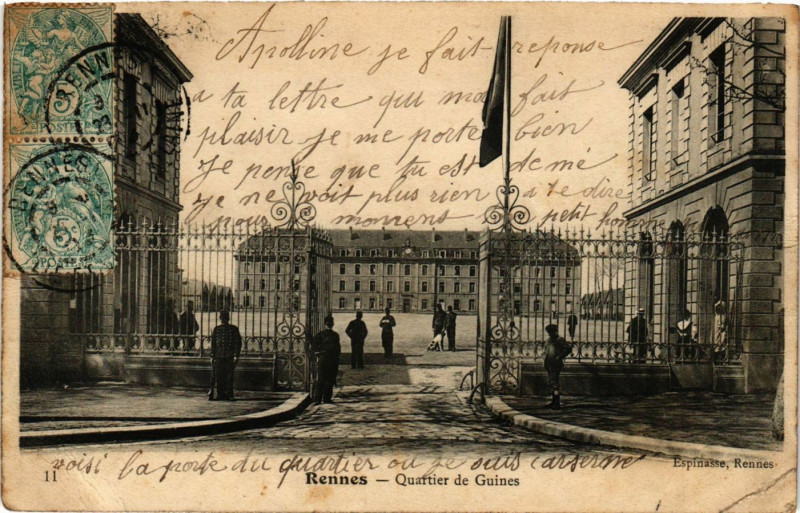 Apolline je fait reponse
a ta lettre qui ma fait
plaisir je me porte bien
Je pense que tu est de mé
je ne voit plus rien a te dire
pour momens petit
RENNES
RENNES
5c
POSTES
5c
voisi la porte du quartier ou je suis caserne
11
Rennes — Quartier de Guines
Espinasse, Rennes